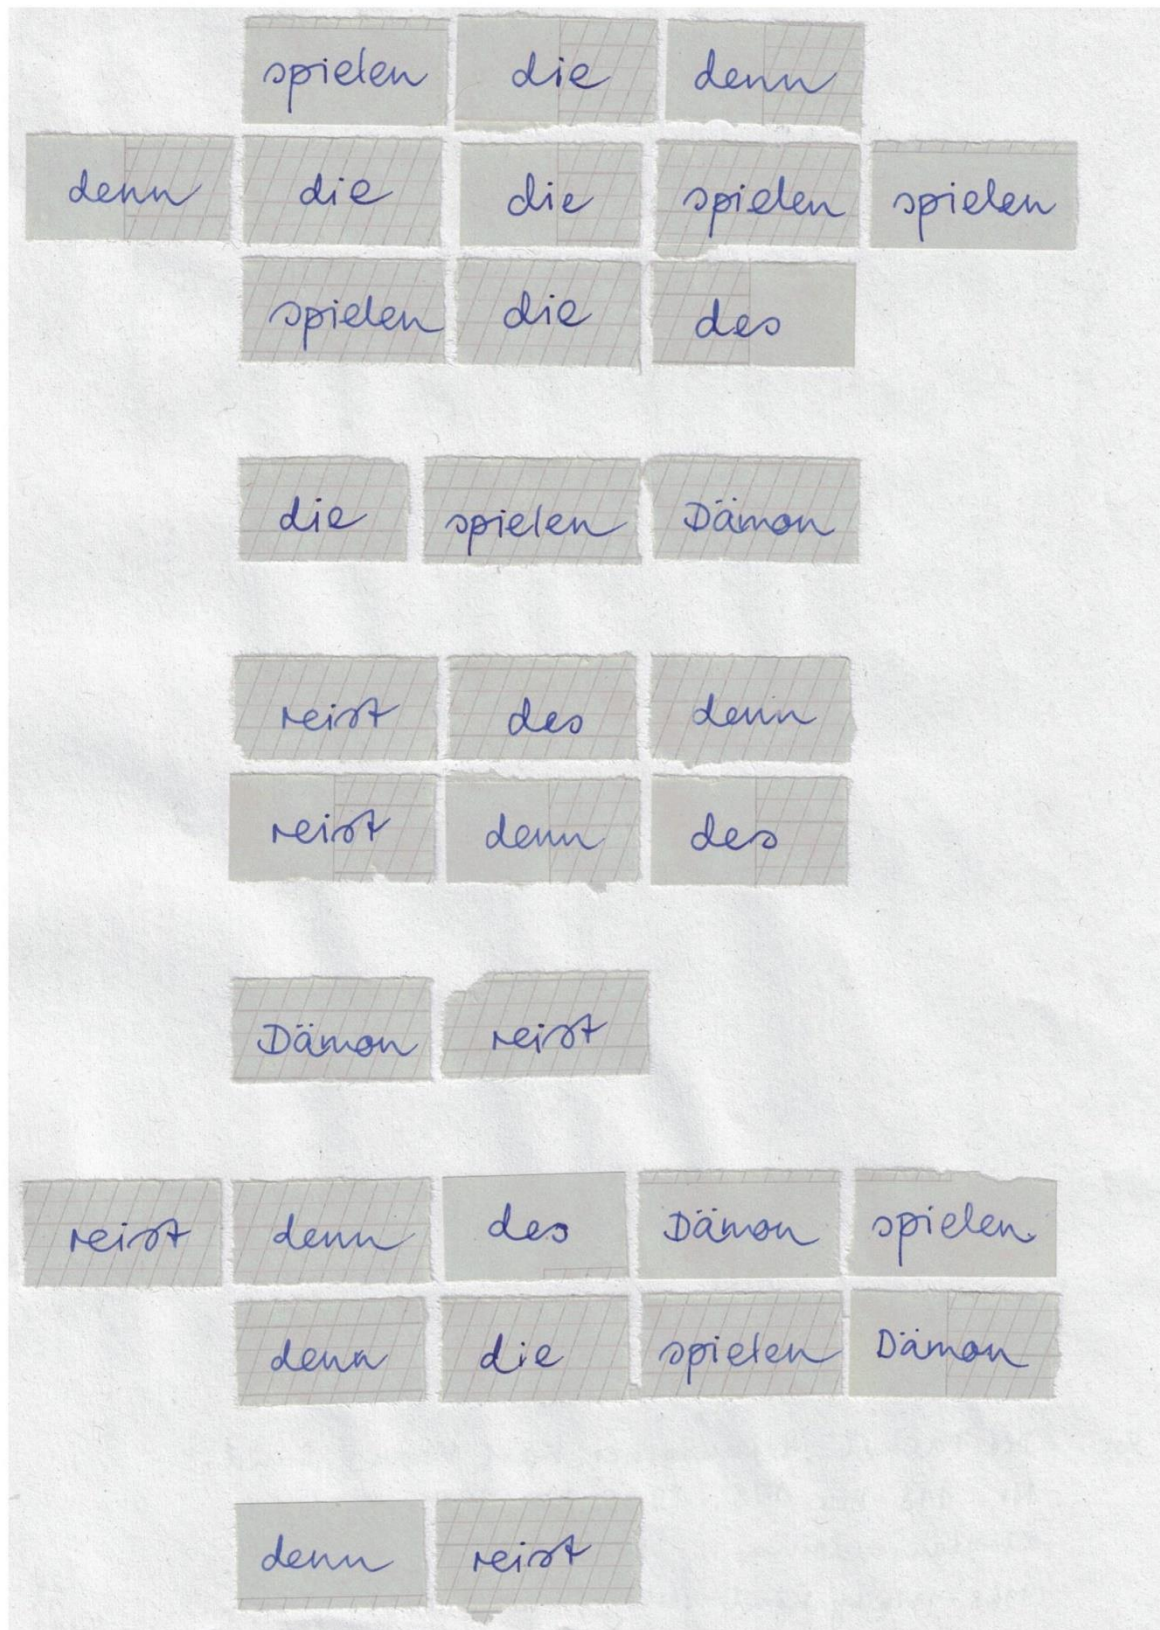 spielen die denn
denn die die spielen spielen
spielen die des
die spielen Dämon
reist des denn
reist denn des
Dämon reist
reist denn des Dämon spielen.
denn die spielen Dämon
denn reist